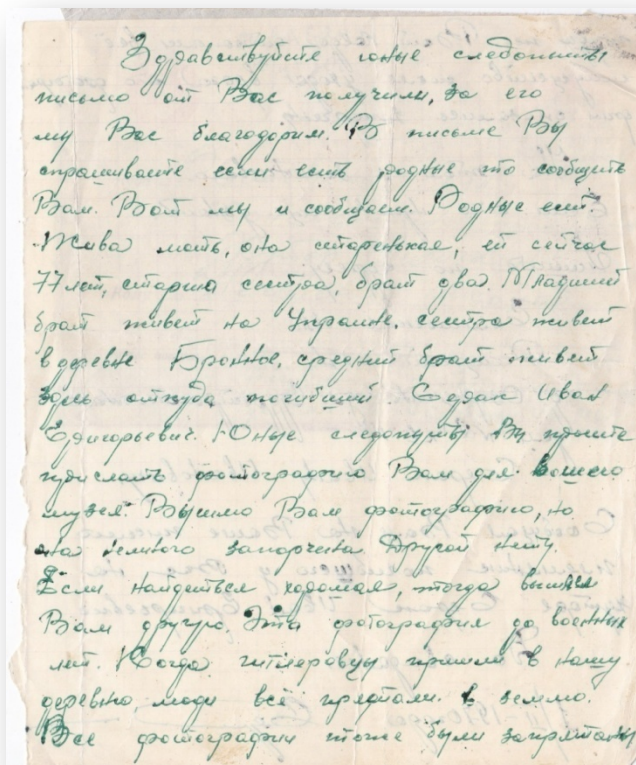 Здравствуйте юные следопыты
письмо от Вас получили, за его
мы Вас благодорим. В письме Вы
спрашиваете если есть родные то сообщить
Вам. Вот мы и сообщаем. Родные есть.
Жива мать, она старенькая, ей сейчас
77 лет, старша сестра, брат два. Младший
брат живет на Украине, сестра живет
в деревне Бронное, средний брат живет
здесь откуда погибший Седак Иван
Григорьевич. Юные следопыты Вы пишите
прислать фотографию Вам для вашего
музея. Вышлю Вам фотографию, но
она немного запорчена другой нету.
Если найдеться хорошая, тогда вышлем
Вам другую. Эта фотография до военных
лет. Когда гитлеровцы пришли в нашу
деревню, люди всё прятали в землю.
Все фотографии тоже были запрятаны